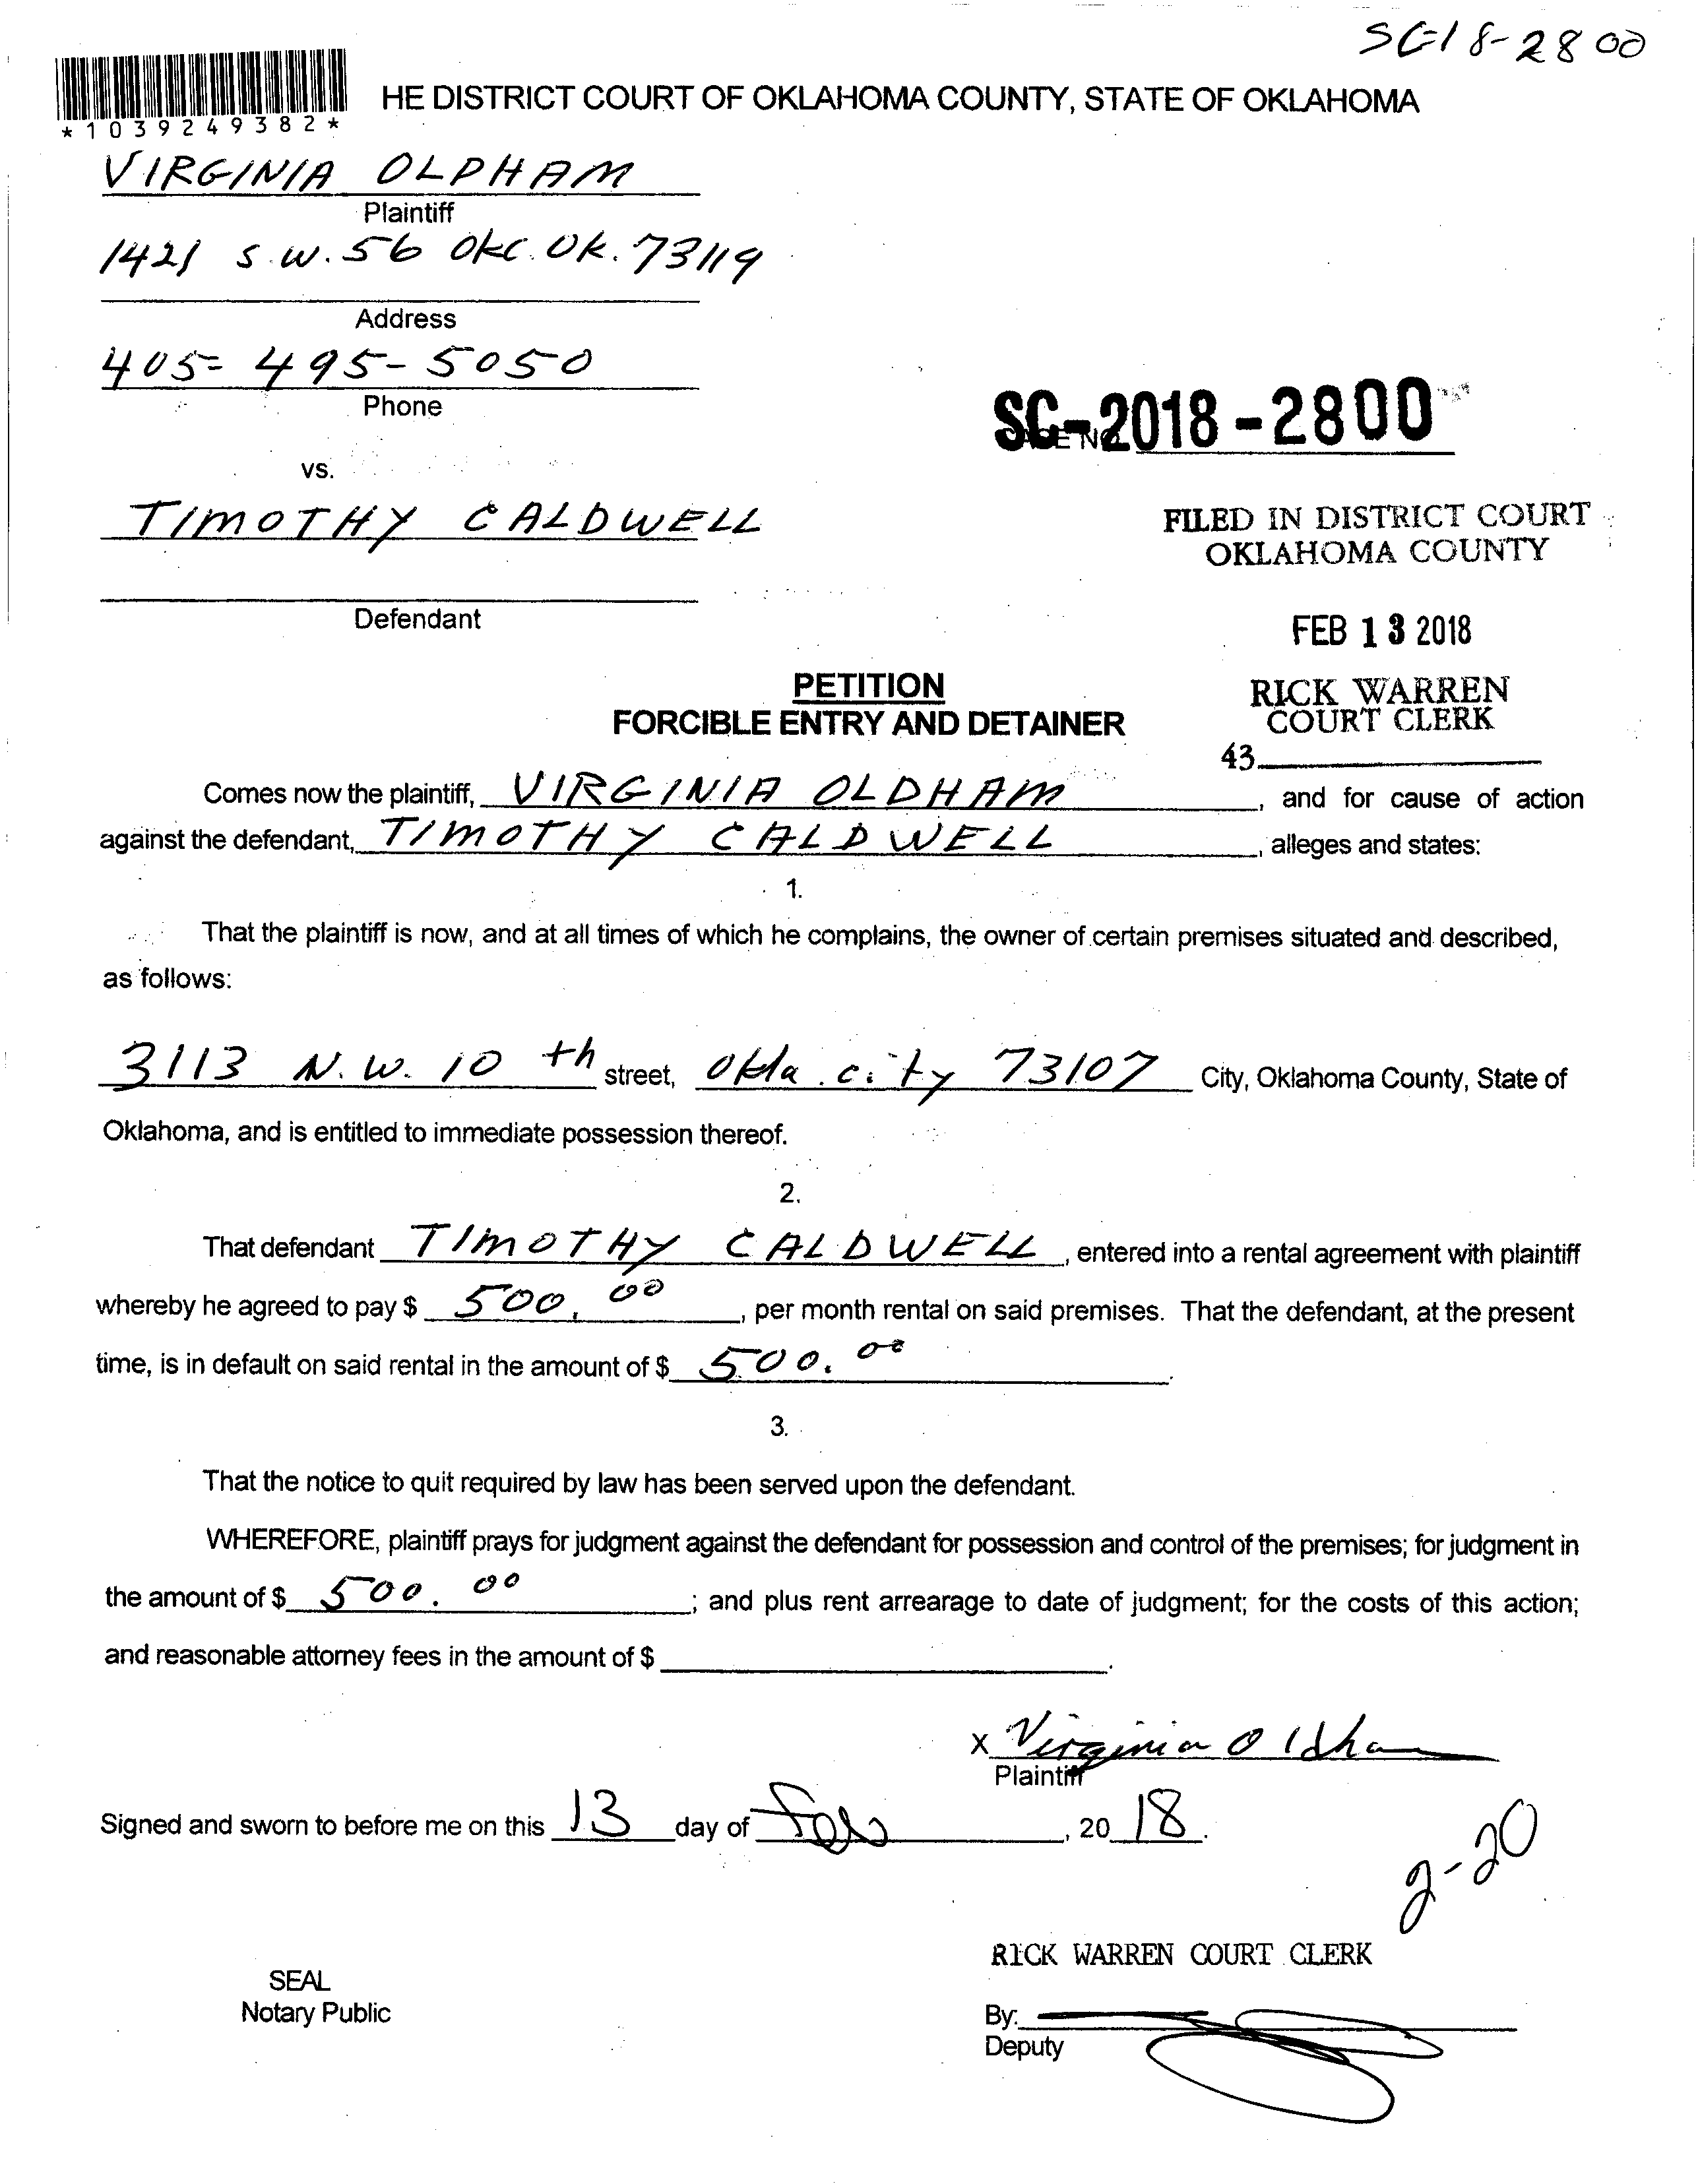 SC18-2800
*1039249382*
HE DISTRICT COURT OF OKLAHOMA COUNTY, STATE OF OKLAHOMA
VIRGINIA OLDHAM
Plaintiff
1421 S.W. 56 OKC. OK. 73119
Address
405-495-5050
Phone
SC-2018-2800
CASE NO.
vs.
TIMOTHY CALDWELL
Defendant
FILED IN DISTRICT COURT
OKLAHOMA COUNTY
FEB 13 2018
RICK WARREN
COURT CLERK
43
PETITION
FORCIBLE ENTRY AND DETAINER
Comes now the plaintiff, VIRGINIA OLDHAM, and for cause of action
against the defendant, TIMOTHY CALDWELL, alleges and states:
1.
That the plaintiff is now, and at all times of which he complains, the owner of certain premises situated and described,
as follows:
3113 N.W. 10th street, Okla. city 73107 City, Oklahoma County, State of
Oklahoma, and is entitled to immediate possession thereof.
2.
That defendant TIMOTHY CALDWELL, entered into a rental agreement with plaintiff
whereby he agreed to pay $ 500.00, per month rental on said premises. That the defendant, at the present
time, is in default on said rental in the amount of $ 500.00.
3.
That the notice to quit required by law has been served upon the defendant.
WHEREFORE, plaintiff prays for judgment against the defendant for possession and control of the premises; for judgment in
the amount of $ 500.00; and plus rent arrearage to date of judgment; for the costs of this action;
and reasonable attorney fees in the amount of $ .
X Virginia Oldham
Plaintiff
Signed and sworn to before me on this 13 day of Feb, 2018.
2-20
RICK WARREN COURT CLERK
SEAL
Notary Public
By:
Deputy